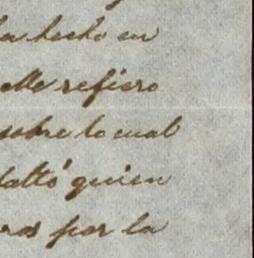 ha hecho en
Me refiero
sobre lo cual
faltó quien
ras por la